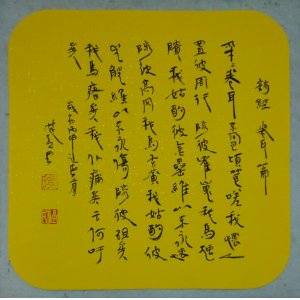 詩經 卷耳篇
采采卷耳不盈頃筐嗟我懷人
置彼周行陟彼崔嵬我馬虺
隤我姑酌彼金罍維以不永懷
陟彼高岡我馬玄黃我姑酌彼
兕觥維以不永傷陟彼砠矣
我馬瘏矣我仆痡矣云何吁
矣